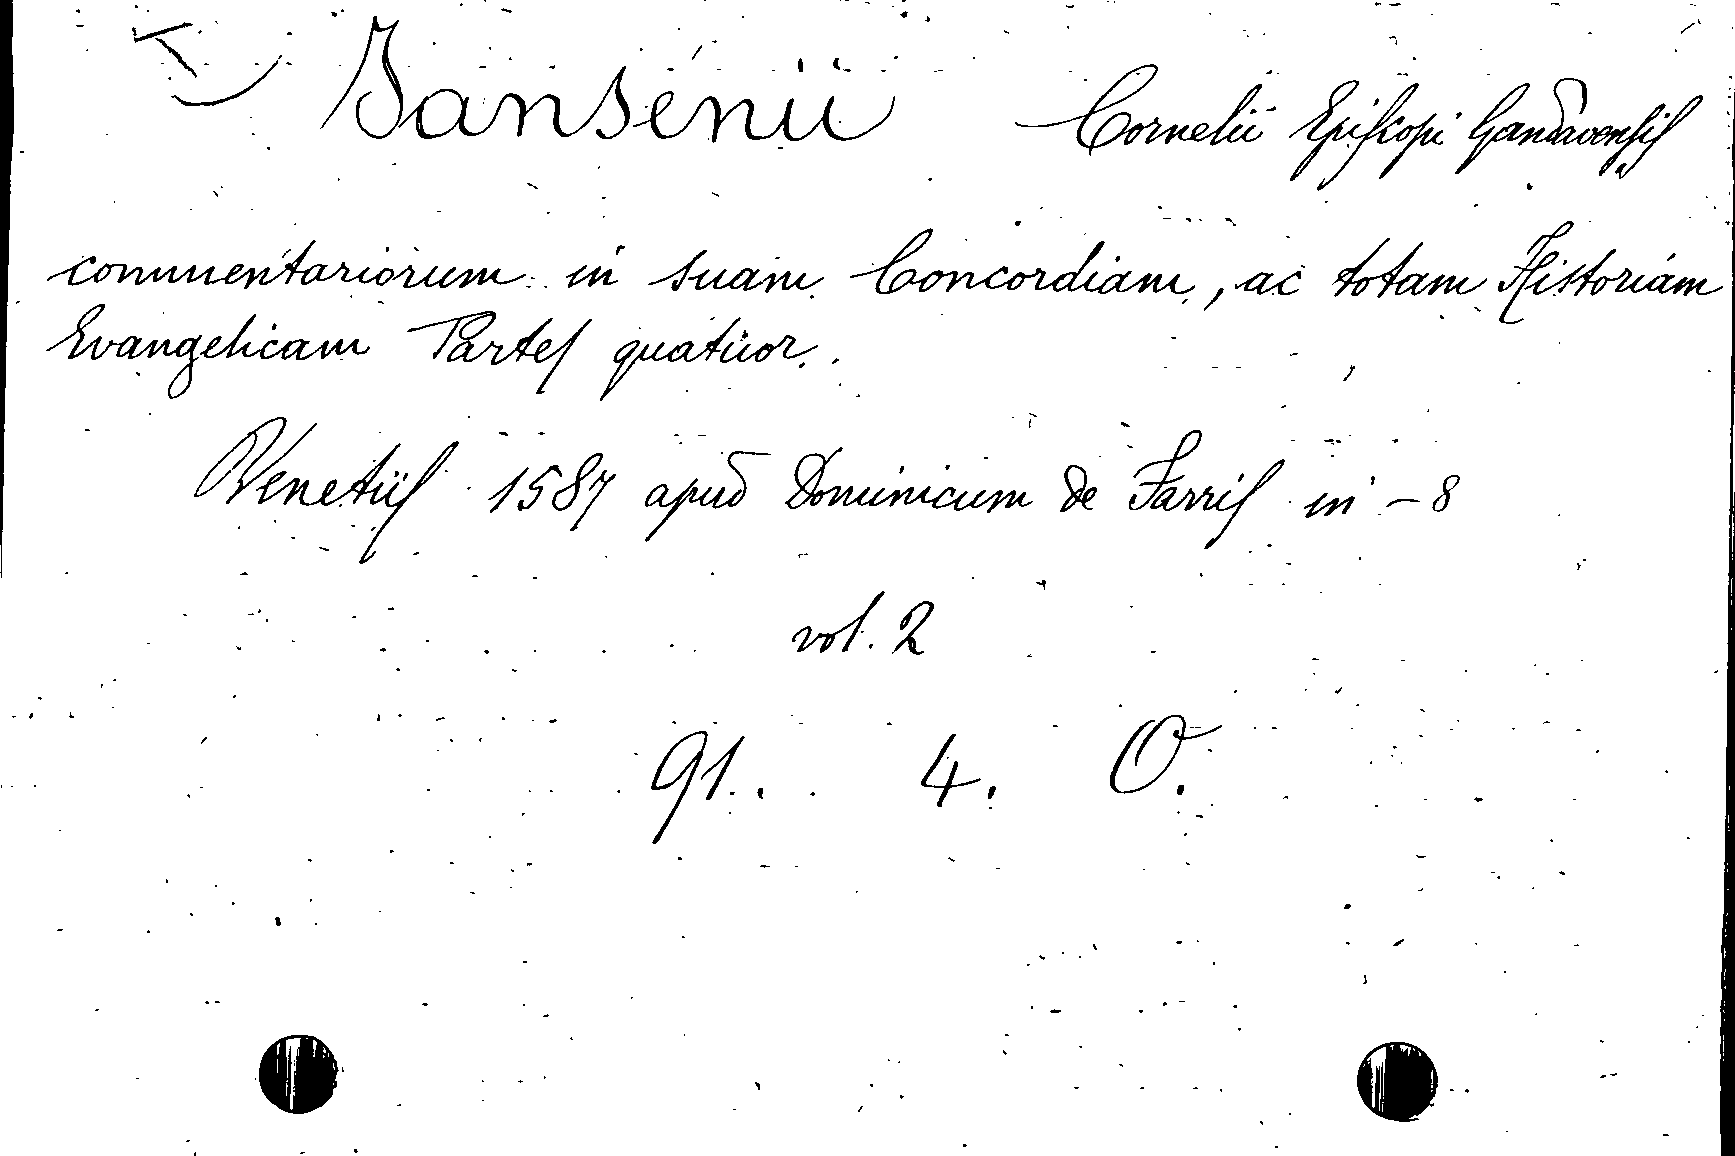 Jansenii Cornelii Episcopi Gandavensis
commentariorum in suam Concordiam, ac totam Historiam
Evangelicam Partes quatuor.
Venetiis 1587 apud Dominicum de Farris in - 8
vol. 2
91. 4. O.